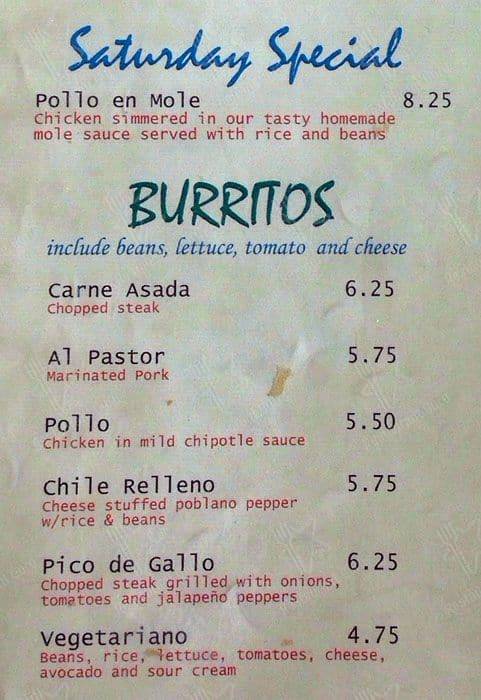 Saturday Special
Pollo en Mole 8.25
Chicken simmered in our tasty homemade
mole sauce served with rice and beans
BURRITOS
include beans, lettuce, tomato and cheese
Carne Asada 6.25
Chopped steak
Al Pastor 5.75
Marinated Pork
Pollo 5.50
Chicken in mild chipotle sauce
Chile Relleno 5.75
Cheese stuffed poblano pepper
w/rice & beans
Pico de Gallo 6.25
Chopped steak grilled with onions,
tomatoes and jalapeño peppers
Vegetariano 4.75
Beans, rice, lettuce, tomatoes, cheese,
avocado and sour cream